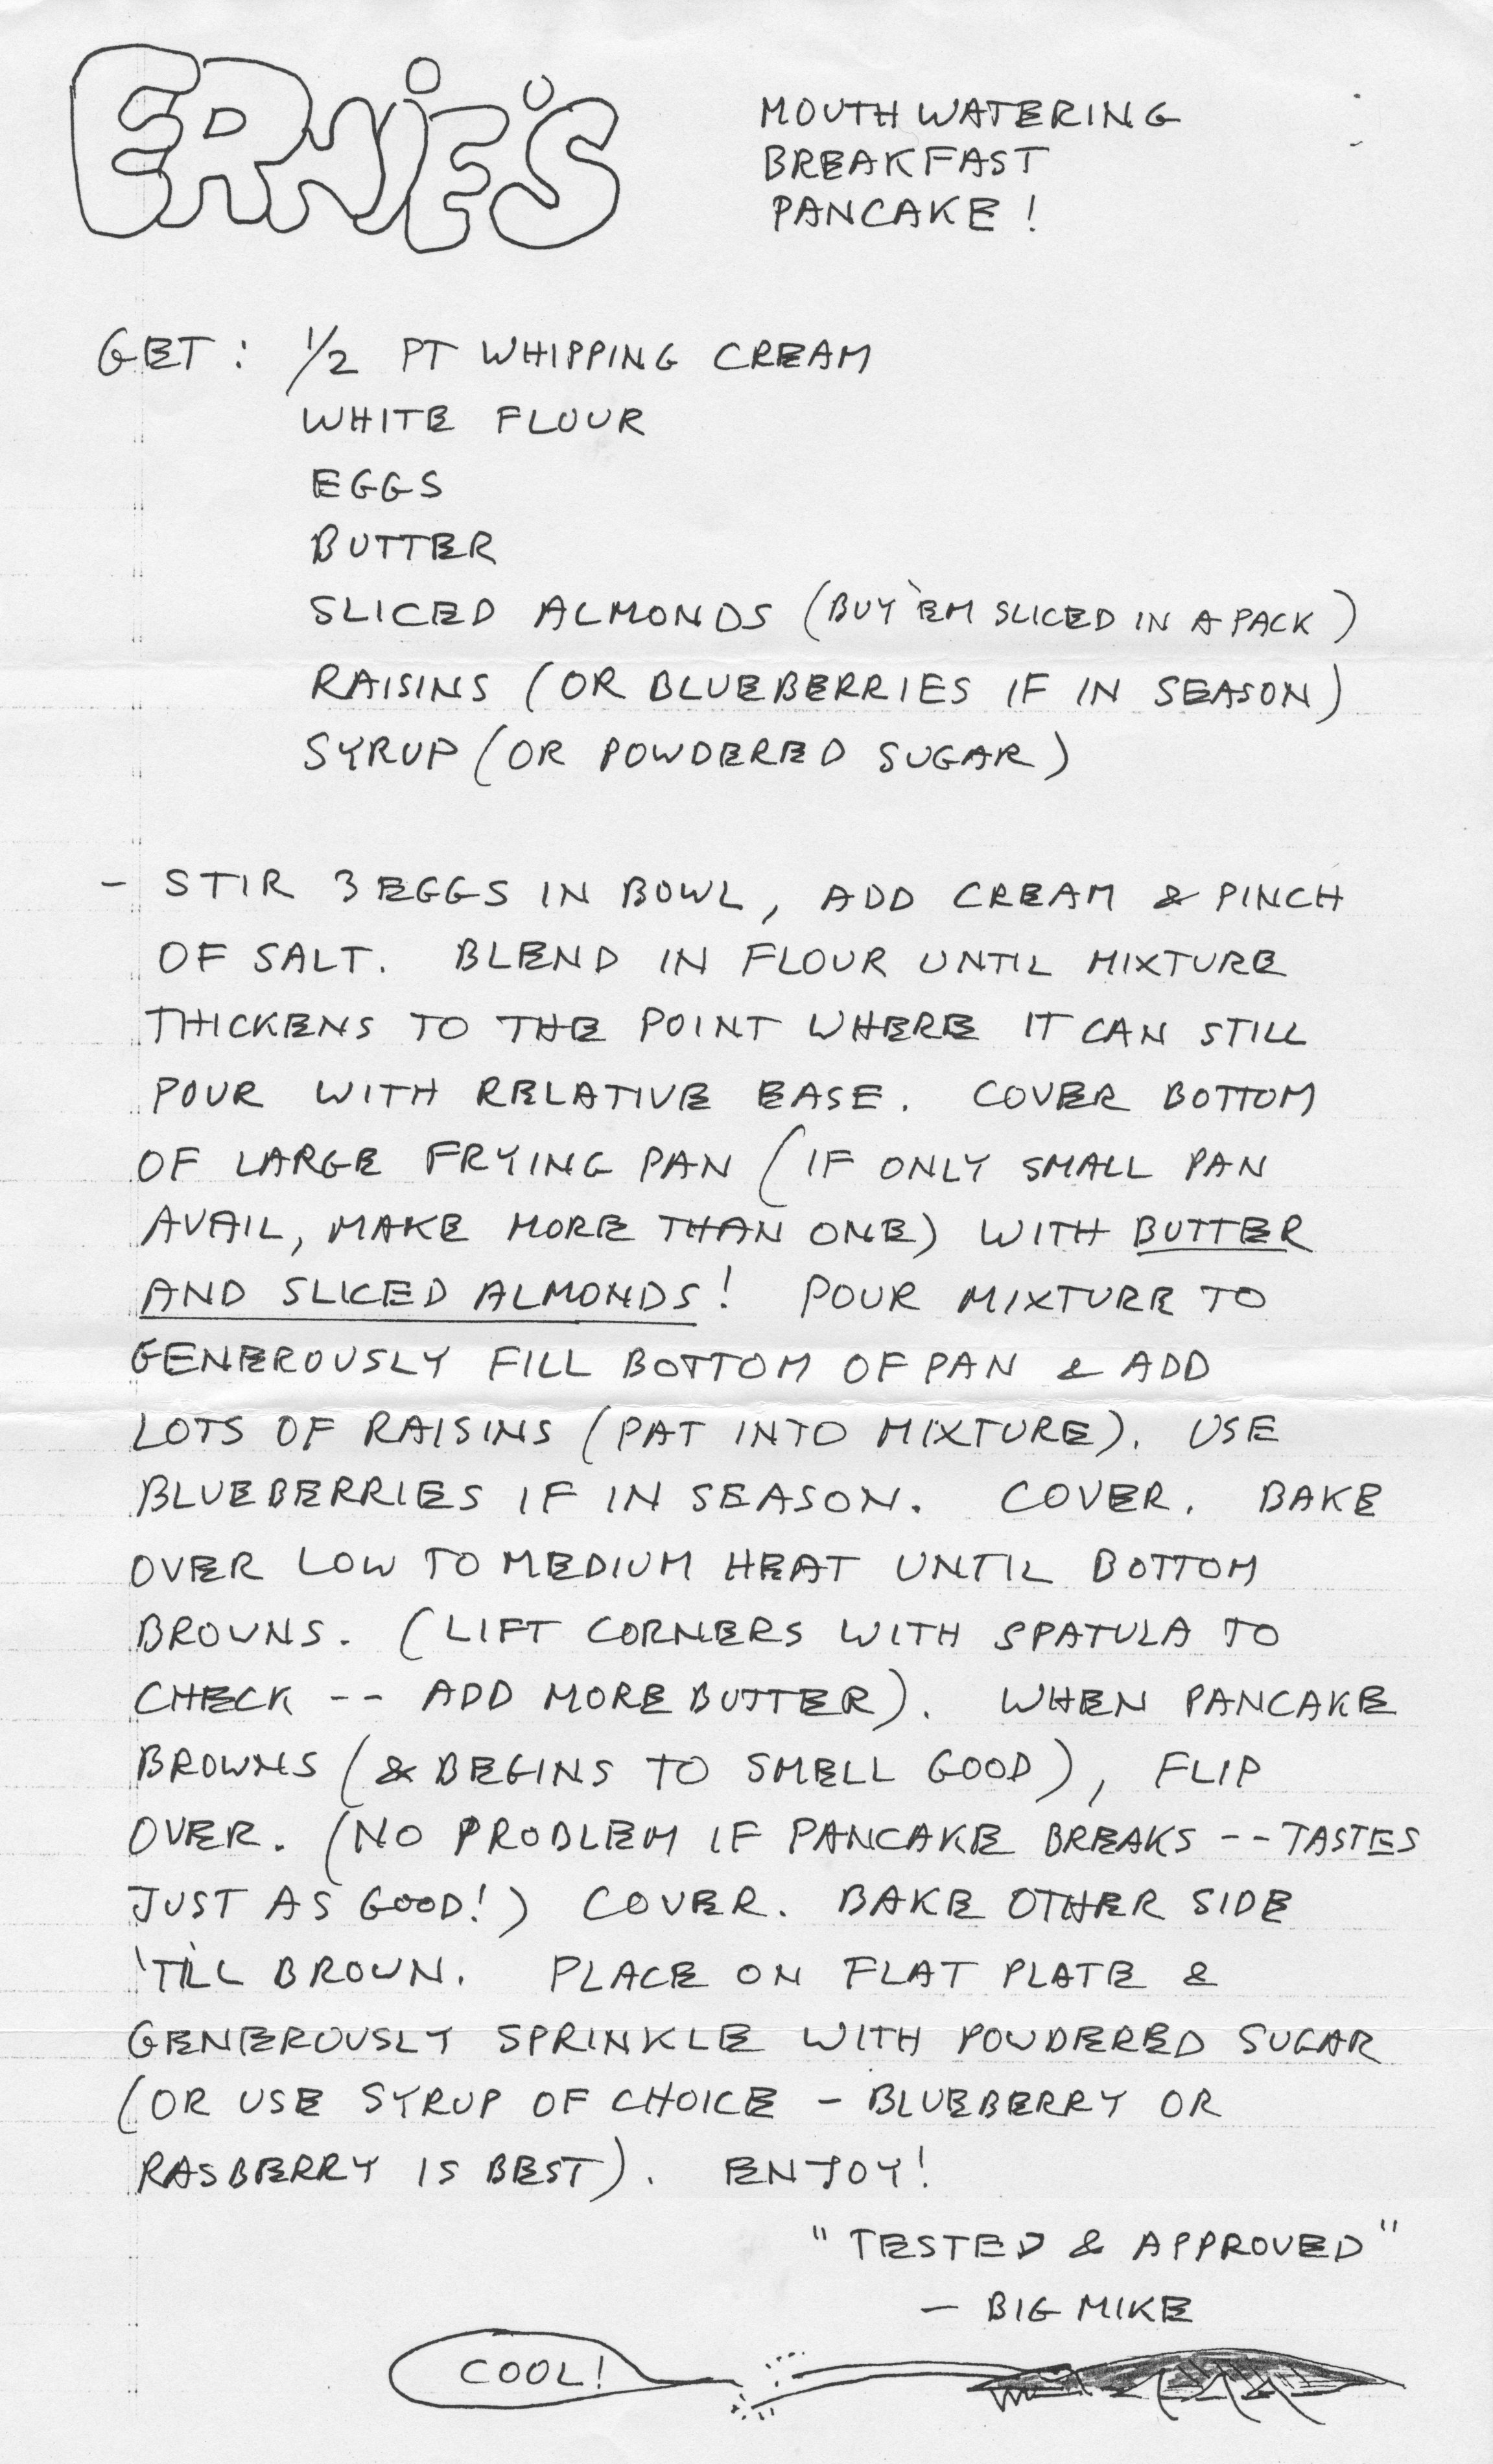 ERNiE'S
MOUTH WATERING
BREAKFAST
PANCAKE!
GET: 1/2 PT WHIPPING CREAM
WHITE FLOUR
EGGS
BUTTER
SLICED ALMONDS (BUY 'EM SLICED IN A PACK)
RAISINS (OR BLUEBERRIES IF IN SEASON)
SYRUP (OR POWDERED SUGAR)
- STIR 3 EGGS IN BOWL, ADD CREAM & PINCH
OF SALT. BLEND IN FLOUR UNTIL MIXTURE
THICKENS TO THE POINT WHERE IT CAN STILL
POUR WITH RELATIVE EASE. COVER BOTTOM
OF LARGE FRYING PAN (IF ONLY SMALL PAN
AVAIL, MAKE MORE THAN ONE) WITH BUTTER
AND SLICED ALMONDS! POUR MIXTURE TO
GENEROUSLY FILL BOTTOM OF PAN & ADD
LOTS OF RAISINS (PAT INTO MIXTURE). USE
BLUEBERRIES IF IN SEASON. COVER. BAKE
OVER LOW TO MEDIUM HEAT UNTIL BOTTOM
BROWNS. (LIFT CORNERS WITH SPATULA TO
CHECK -- ADD MORE BUTTER). WHEN PANCAKE
BROWNS (& BEGINS TO SMELL GOOD), FLIP
OVER. (NO PROBLEM IF PANCAKE BREAKS -- TASTES
JUST AS GOOD!) COVER. BAKE OTHER SIDE
'TILL BROWN. PLACE ON FLAT PLATE &
GENEROUSLY SPRINKLE WITH POWDERED SUGAR
(OR USE SYRUP OF CHOICE - BLUEBERRY OR
RASBERRY IS BEST). ENJOY!
"TESTED & APPROVED"
- BIG MIKE
COOL!